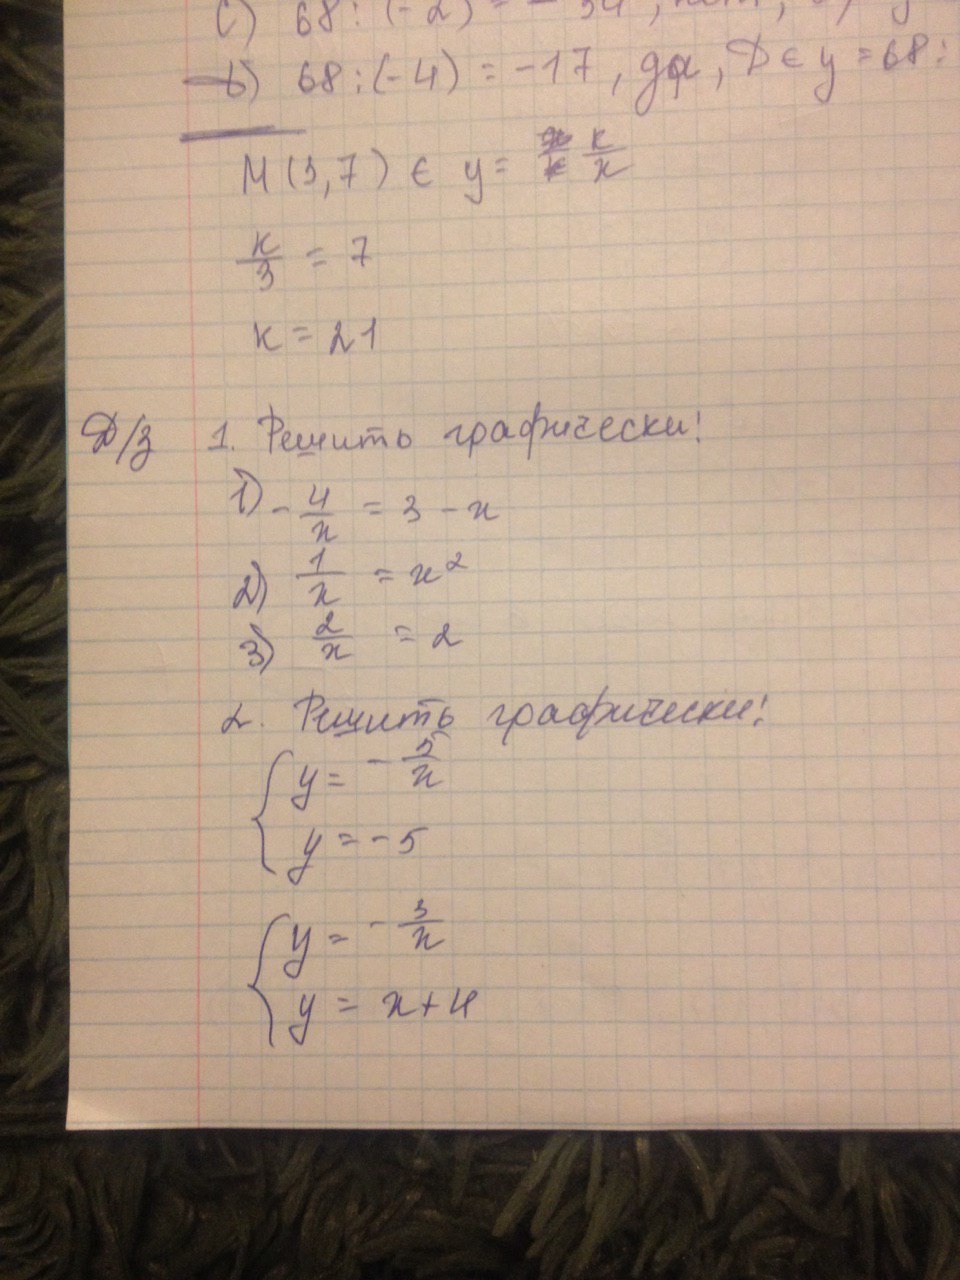 c) 68 : (-2) = - 34, нет,
b) 68 : (-4) = -17, да, D ∈ y = 68 :
M (3,7) ∈ y = к/x
к/3 = 7
к = 21
Д/з 1. Решить графически!
1) - 4/x = 3 - x
2) 1/x = x²
3) 2/x = 2
2. Решить графически!
{ y = - 5/x
y = -5
{ y = - 3/x
y = x + 4